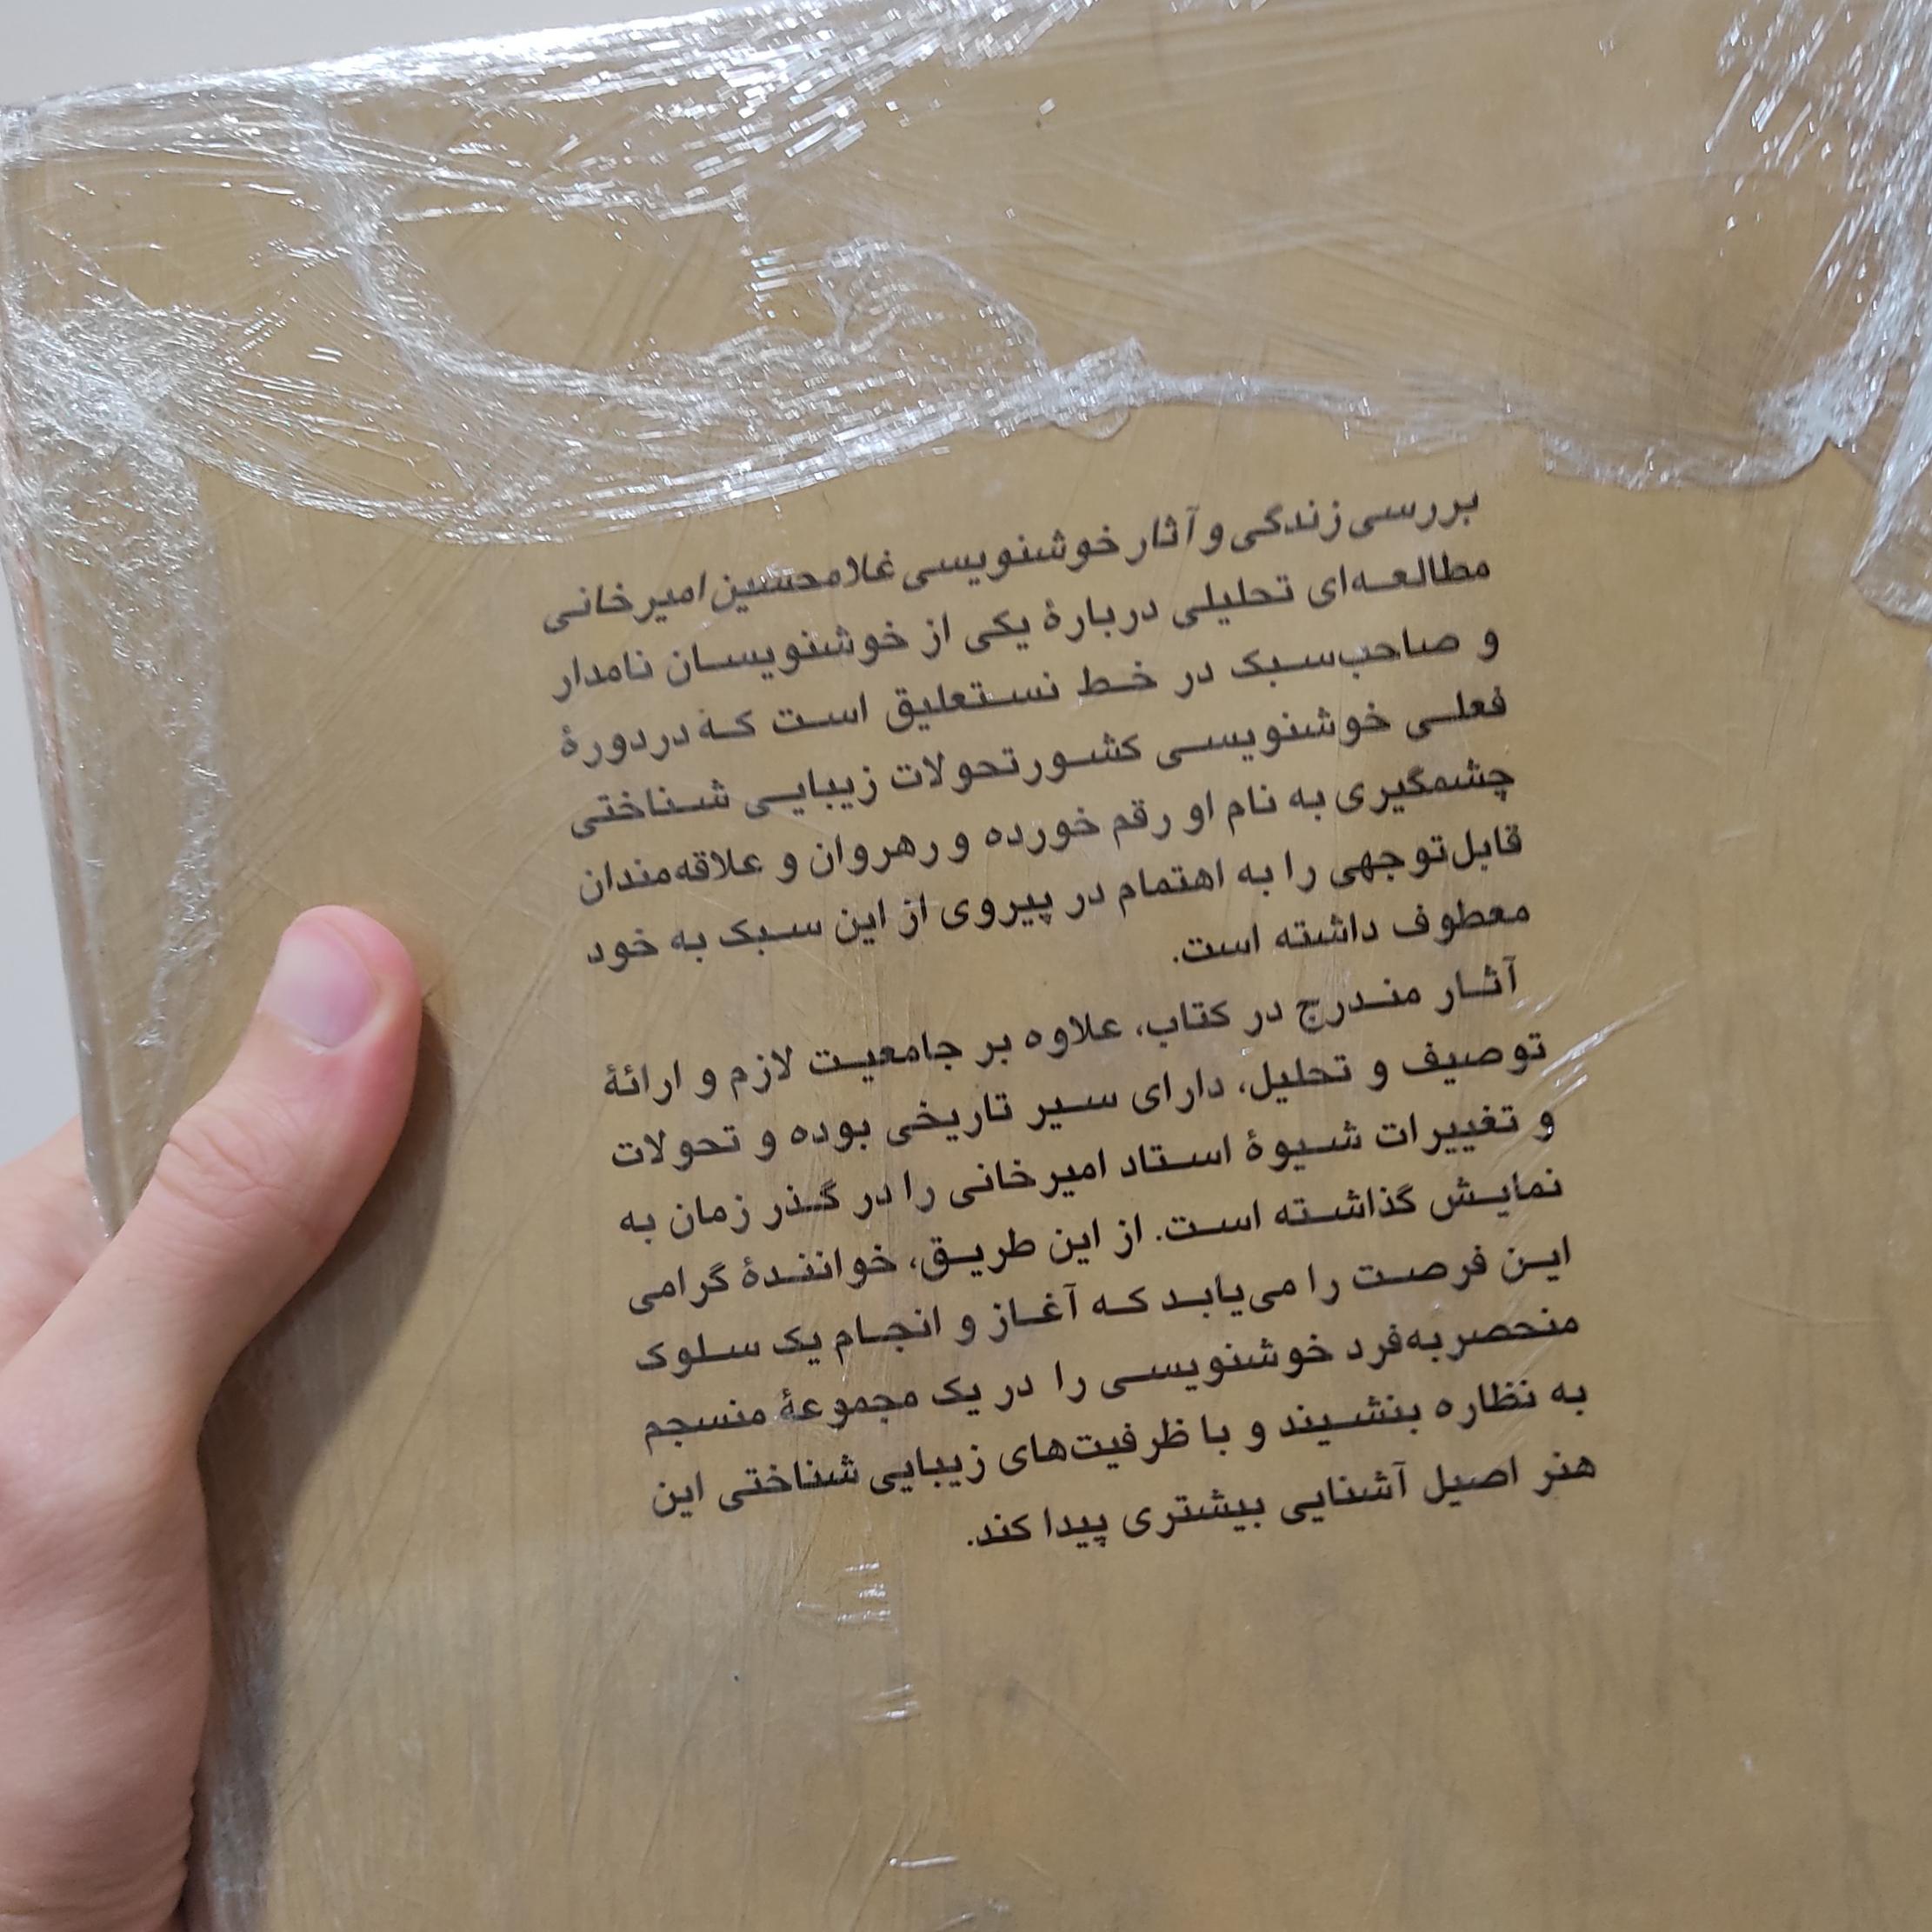 بررسی زندگی و آثار خوشنویسی غلامحسین امیرخانی
مطالعه‌ای تحلیلی دربارهٔ یکی از خوشنویسان نامدار
و صاحب‌سبک در خط نستعلیق است که در دورهٔ
فعلی خوشنویسی کشور تحولات زیبایی شناختی
چشمگیری به نام او رقم خورده و رهروان و علاقه‌مندان
قابل‌توجهی را به اهتمام در پیروی از این سبک به خود
معطوف داشته است.
آثار مندرج در کتاب، علاوه بر جامعیت لازم و ارائهٔ
توصیف و تحلیل، دارای سیر تاریخی بوده و تحولات
و تغییرات شیوهٔ استاد امیرخانی را در گذر زمان به
نمایش گذاشته است. از این طریق، خوانندهٔ گرامی
این فرصت را می‌یابد که آغاز و انجام یک سلوک
منحصربه‌فرد خوشنویسی را در یک مجموعهٔ منسجم
به نظاره بنشیند و با ظرفیت‌های زیبایی شناختی این
هنر اصیل آشنایی بیشتری پیدا کند.